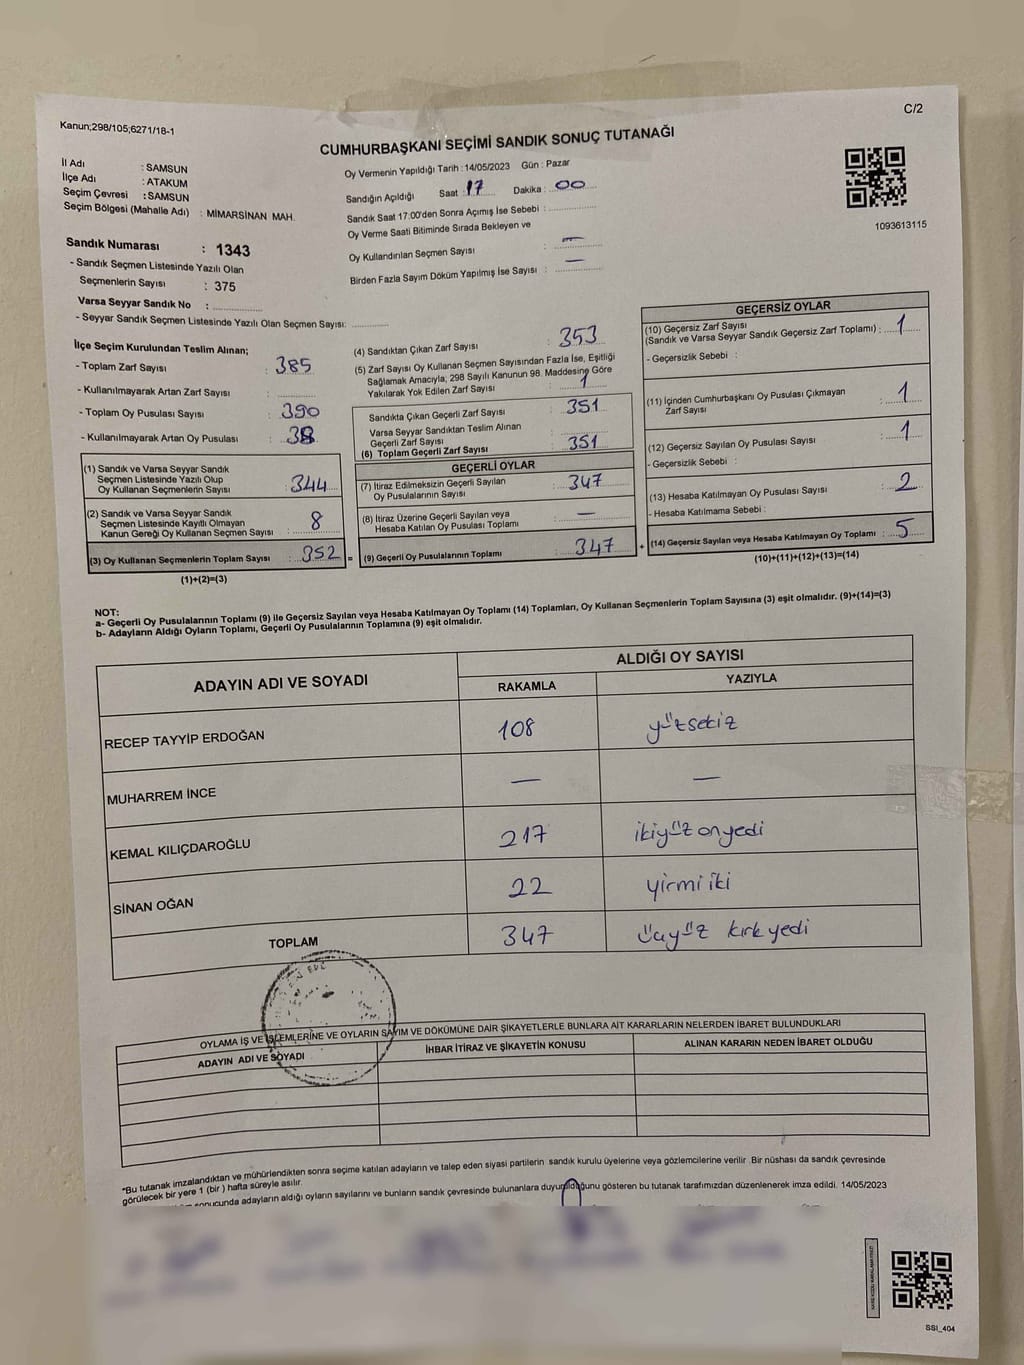 C/2
Kanun;298/105;6271/18-1
CUMHURBAŞKANI SEÇİMİ SANDIK SONUÇ TUTANAĞI
İl Adı : SAMSUN
İlçe Adı : ATAKUM
Seçim Çevresi : SAMSUN
Seçim Bölgesi (Mahalle Adı) : MİMARSİNAN MAH.
Sandık Numarası : 1343
- Sandık Seçmen Listesinde Yazılı Olan
Seçmenlerin Sayısı : 375
Varsa Seyyar Sandık No :
- Seyyar Sandık Seçmen Listesinde Yazılı Olan Seçmen Sayısı:
Oy Vermenin Yapıldığı Tarih : 14/05/2023 Gün : Pazar
Sandığın Açıldığı Saat : 17 Dakika : 00
Sandık Saat 17:00'den Sonra Açımış İse Sebebi :
Oy Verme Saati Bitiminde Sırada Bekleyen ve
Oy Kullandırılan Seçmen Sayısı : —
Birden Fazla Sayım Döküm Yapılmış İse Sayısı : —
1093613115
İlçe Seçim Kurulundan Teslim Alınan;
- Toplam Zarf Sayısı : 385
- Kullanılmayarak Artan Zarf Sayısı :
- Toplam Oy Pusulası Sayısı : 390
- Kullanılmayarak Artan Oy Pusulası : 38
(1) Sandık ve Varsa Seyyar Sandık
Seçmen Listesinde Yazılı Olup
Oy Kullanan Seçmenlerin Sayısı : 344
(2) Sandık ve Varsa Seyyar Sandık
Seçmen Listesinde Kayıtlı Olmayan
Kanun Gereği Oy Kullanan Seçmen Sayısı : 8
(3) Oy Kullanan Seçmenlerin Toplam Sayısı : 352 =
(1)+(2)=(3)
(4) Sandıktan Çıkan Zarf Sayısı : 353
(5) Zarf Sayısı Oy Kullanan Seçmen Sayısından Fazla İse, Eşitliği
Sağlamak Amacıyla, 298 Sayılı Kanunun 98. Maddesine Göre
Yakılarak Yok Edilen Zarf Sayısı : 1
Sandıkta Çıkan Geçerli Zarf Sayısı : 351
Varsa Seyyar Sandıktan Teslim Alınan
Geçerli Zarf Sayısı :
(6) Toplam Geçerli Zarf Sayısı : 351
GEÇERLİ OYLAR
(7) İtiraz Edilmeksizin Geçerli Sayılan
Oy Pusulalarının Sayısı : 347
(8) İtiraz Üzerine Geçerli Sayılan veya
Hesaba Katılan Oy Pusulası Toplamı : —
(9) Geçerli Oy Pusulalarının Toplamı : 347 +
GEÇERSİZ OYLAR
(10) Geçersiz Zarf Sayısı
(Sandık ve Varsa Seyyar Sandık Geçersiz Zarf Toplamı) : 1
- Geçersizlik Sebebi :
(11) İçinden Cumhurbaşkanı Oy Pusulası Çıkmayan
Zarf Sayısı : 1
(12) Geçersiz Sayılan Oy Pusulası Sayısı : 1
- Geçersizlik Sebebi :
(13) Hesaba Katılmayan Oy Pusulası Sayısı : 2
- Hesaba Katılmama Sebebi :
(14) Geçersiz Sayılan veya Hesaba Katılmayan Oy Toplamı : 5
(10)+(11)+(12)+(13)=(14)
NOT:
a- Geçerli Oy Pusulalarının Toplamı (9) ile Geçersiz Sayılan veya Hesaba Katılmayan Oy Toplamı (14) Toplamları, Oy Kullanan Seçmenlerin Toplam Sayısına (3) eşit olmalıdır. (9)+(14)=(3)
b- Adayların Aldığı Oyların Toplamı, Geçerli Oy Pusulalarının Toplamına (9) eşit olmalıdır.
ADAYIN ADI VE SOYADI ALDIĞI OY SAYISI
RAKAMLA YAZIYLA
RECEP TAYYİP ERDOĞAN 108 yüzsekiz
MUHARREM İNCE — —
KEMAL KILIÇDAROĞLU 217 ikiyüz onyedi
SİNAN OĞAN 22 yirmi iki
TOPLAM 347 üçyüz kırk yedi
OYLAMA İŞ VE İŞLEMLERİNE VE OYLARIN SAYIM VE DÖKÜMÜNE DAİR ŞİKAYETLERLE BUNLARA AİT KARARLARIN NELERDEN İBARET BULUNDUKLARI
ADAYIN ADI VE SOYADI İHBAR İTİRAZ VE ŞİKAYETİN KONUSU ALINAN KARARIN NEDEN İBARET OLDUĞU
*Bu tutanak imzalandıktan ve mühürlendikten sonra seçime katılan adayların ve talep eden siyasi partilerin sandık kurulu üyelerine veya gözlemcilerine verilir .Bir nüshası da sandık çevresinde
görülecek bir yere 1 (bir ) hafta süreyle asılır.
sonucunda adayların aldığı oyların sayılarını ve bunların sandık çevresinde bulunanlara duyurulduğunu gösteren bu tutanak tarafımızdan düzenlenerek imza edildi. 14/05/2023
SSI_404